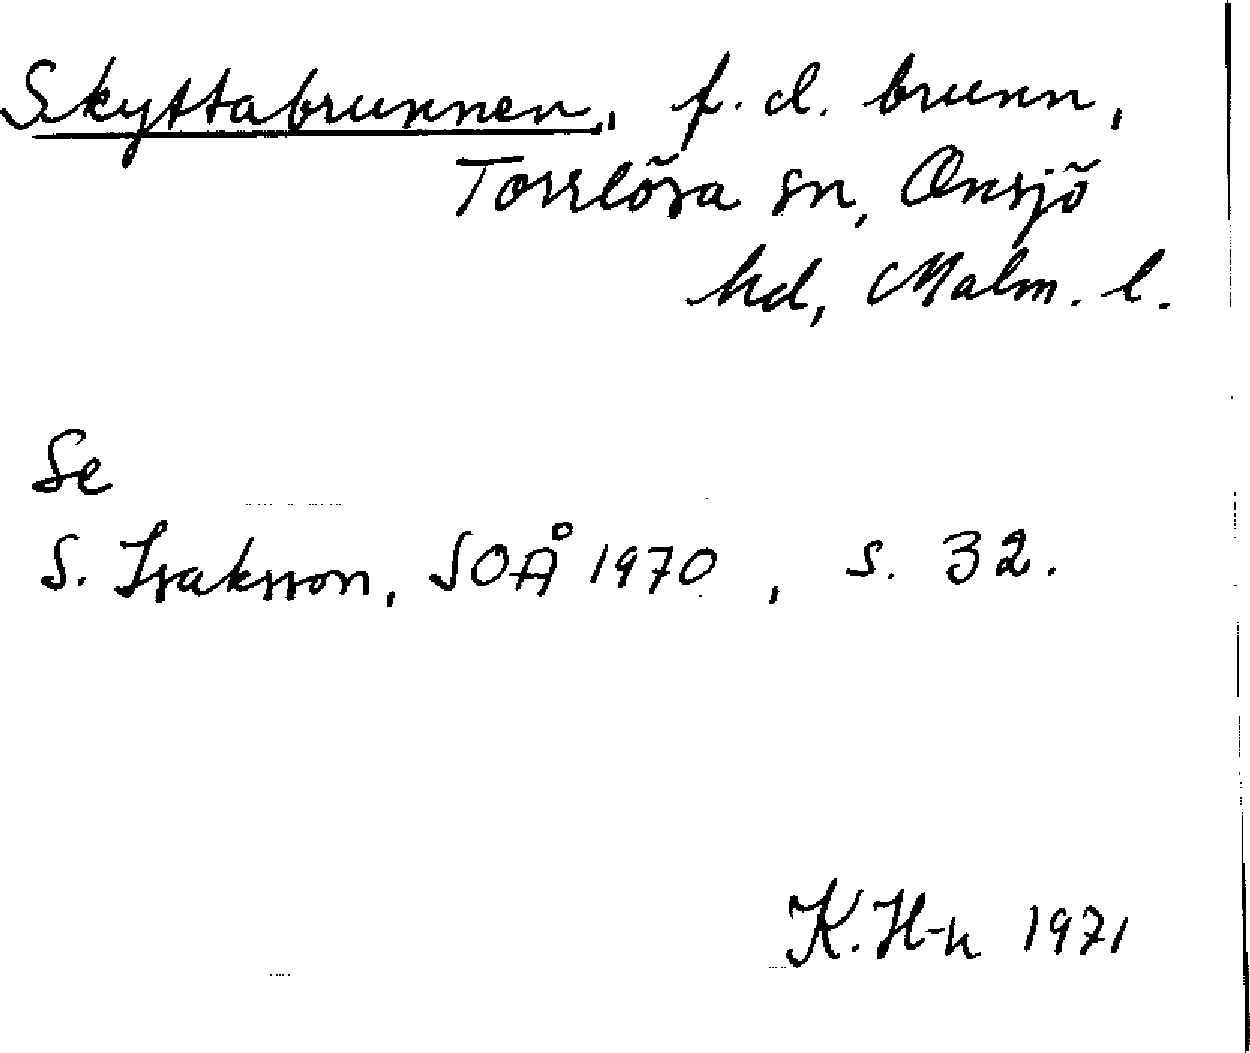 Skyttabrunnen, f.d. brunn,
Torrlösa sn, Onsjö
hd, Malm. l.
Se
S. Isaksson, SOÅ 1970, s. 32.
K. H-n 1971